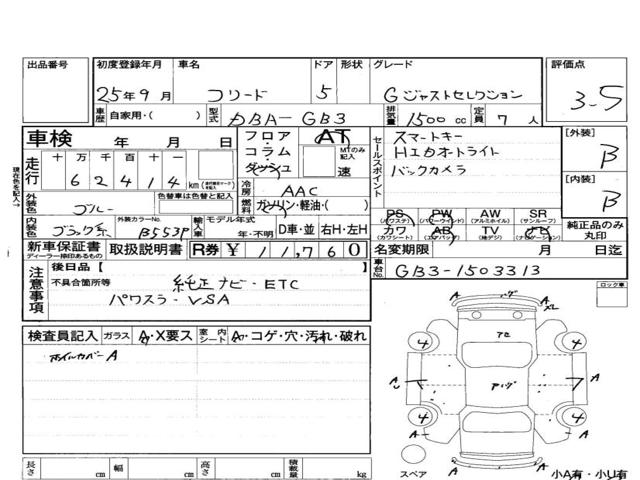 出品番号 初度登録年月 車名 ドア 形状 グレード 評価点
25年9月 フリード 5 Gジャストセレクション 3.5
車歴 自家用・( ) 型式 DBA-GB3 排気量 1500 cc 定員 7 人
車検 年 月 日 フロア・コラム・ダッシュ AT MTのみ記入 速
セールスポイント スマートキー
HIDオートライト
バックカメラ
[外装] B
現在の状況を記入→
走行 十万千百十一
62414 km
冷房 AAC
[内装] B
外装色 ブルー 色替車は色替と記入 燃料 ガソリン・軽油・( )
PS (パワステ) PW (パワーウインド) AW (アルミホイル) SR (サンルーフ)
内装色 ブラック系 外装カラーNo. B553P 輸入車 モデル年式 年・不明 D車・並 右H・左H
カワ (カワシート) AB (エアバック) TV (地デジ) ナビ (ナビゲーション) 純正品のみ丸印
新車保証書 ディーラー捺印あるもの 取扱説明書 R券 ¥11,760
名変期限 月 日迄
注意事項 後日品 [ ]
車台No. GB3-1503313
不具合箇所等 純正ナビ・ETC
パワスラ・VSA
ロック車
検査員記入 ガラス A・X要ス 室内シート A・コゲ・穴・汚れ・破れ
ホイルカバーA
A A
4 4
A A
4 4
A A
A
スペア 小A有・小U有
長さ cm 幅 cm 高さ cm 積載量 kg